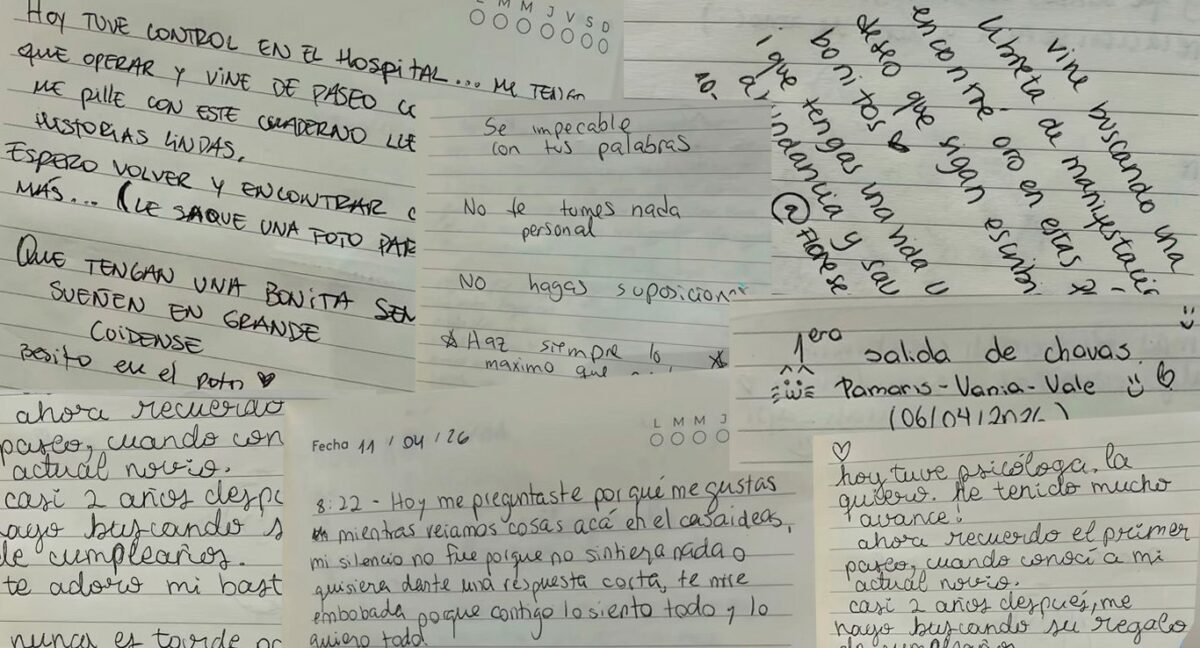 HOY TUVE CONTROL EN EL HOSPITAL... ME TENGO
QUE OPERAR Y VINE DE PASEO
ME PILLE CON ESTE CUADERNO LLE
HISTORIAS LINDAS.
ESPERO VOLVER Y ENCONTRAR
MÁS... (LE SAQUE UNA FOTO PAR
QUE TENGAN UNA BONITA SEM
SUEÑEN EN GRANDE
COIDENSE
Besito en el poto ♥
L M M J V S D
Se impecable
con tus palabras
No te tomes nada
personal
No hagas suposicion
☆ Haz siempre lo ☆
máximo que
vine buscando una
libreta de manifestació
encontré oro en estas
deseo que sigan escribi
bonitos
i que tengas una vida
y sal
@FLORESE
1ero
salida de chavas.
Pamaris-Vania-Vale
(06/04/2026)
ahora recuerdo
paseo, cuando con
actual novio.
casi 2 años despu
hayo buscando s
de cumpleaños.
te adoro mi bast
nunca es tarde
L M M J
Fecha 11/04/26
8:22 - Hoy me preguntaste por qué me gustas
mientras veíamos cosas acá en el casaideas,
mi silencio no fue porque no sintiera nada o
quisiera darte una respuesta corta, te mire
embobada porque contigo lo siento todo y lo
quiero todo.
♡
hoy tuve psicóloga, la
quiero. He tenido mucho
avance!
ahora recuerdo el primer
paseo, cuando conocí a mi
actual novio.
casi 2 años después, me
hayo buscando su regalo
de cumpleaños